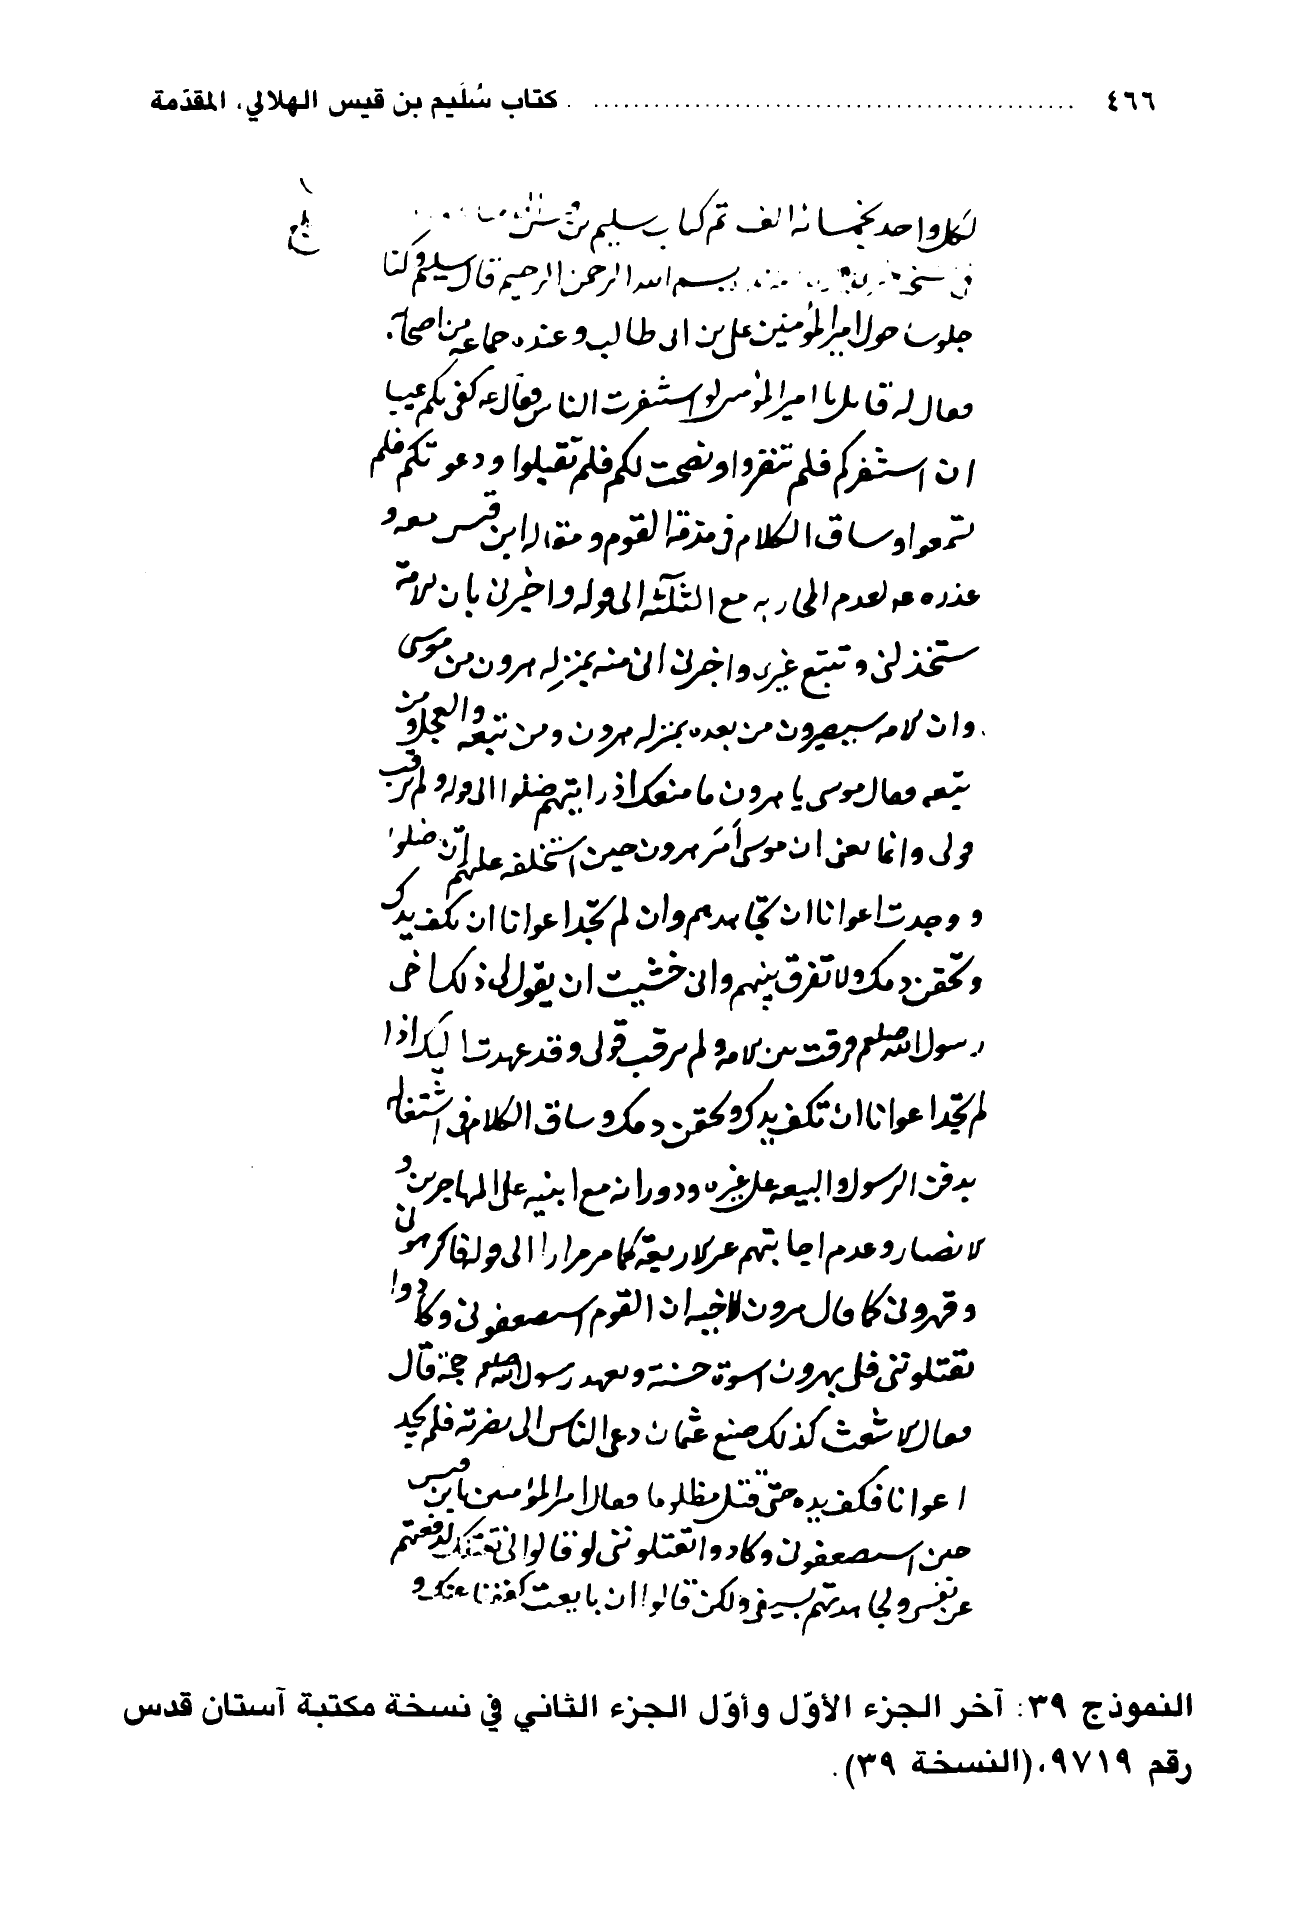 ٤٦٦ ........ كتاب سُلَيم بن قيس الهلالي، المقدّمة
لكل واحد بخمسمائه الف تم كتاب سليم بن
بسم الله الرحمن الرحيم قال سليم وكنا
جلوسا حول امير المؤمنين على بن ابى طالب وعنده جماعه من اصحابه
فعال له قايل يا امير المؤمنين لو استنفرت الناس فعال عه كفى بكم عيبا
ان استنفركم فلم تنفروا ونصحت لكم فلم تقبلوا ودعوتكم فلم
تسمعوا وساق الكلام فى مذمة القوم ومقاله ابن قيس معه و
عذره عه لعدم المحاربه مع الثلثه الى قوله واخبرنى بان الامة
ستخذلنى وتتبع غيرى واخبرنى انى منه بمنزله هرون من موسى
وان الامه سيصيرون من بعده بمنزله هرون ومن تبعه والعجل ومن
تبعه فعال موسى يا هرون ما منعك اذ رايتهم ضلوا الى قوله ولم ترقب
قولى وانما يعنى ان موسى أمَرَ هرون حين استخلفه عليهم ان ضلوا
و وجدت اعوانا ان تجاهدهم وان لم تجد اعوانا ان تكف يدك
وتحقن دمك ولا تفرق بينهم وانى خشيت ان يقول لى ذلك اخى
رسول الله صلعم فرقت بين الامه ولم ترقب قولى وقد عهدت اليك اذا
لم تجد اعوانا ان تكف يدك وتحقن دمك وساق الكلام فى اشتغاله
بدفن الرسول والبيعه على غيره ودورانه مع ابنيه على المهاجرين و
الانصار وعدم اجابتهم غير الاربعة كما مر مرارا الى قوله فاكرهونى
وقهرونى كما قال هرون لاخيه ان القوم استضعفونى وكادوا
يقتلوننى فلى بهرون اسوة حسنة وبعهد رسول الله صلعم حجة قال
فعال الاشعث كذلك صنع عثمان دعى الناس الى نصرته فلم يجد
اعوانا فكف يده حتى قتل مظلوما فعال امير المؤمنين يا بن قيس
حين استضعفونى وكادوا يقتلوننى لو قالوا لى نقتلك لدفعتهم
عن نفسى ولجاهدتهم بسيفى ولكن قالوا ان بايعت كففنا عنك و
النموذج ٣٩: آخر الجزء الأوّل وأوّل الجزء الثاني في نسخة مكتبة آستان قدس
رقم ٩٧١٩، (النسخة ٣٩).